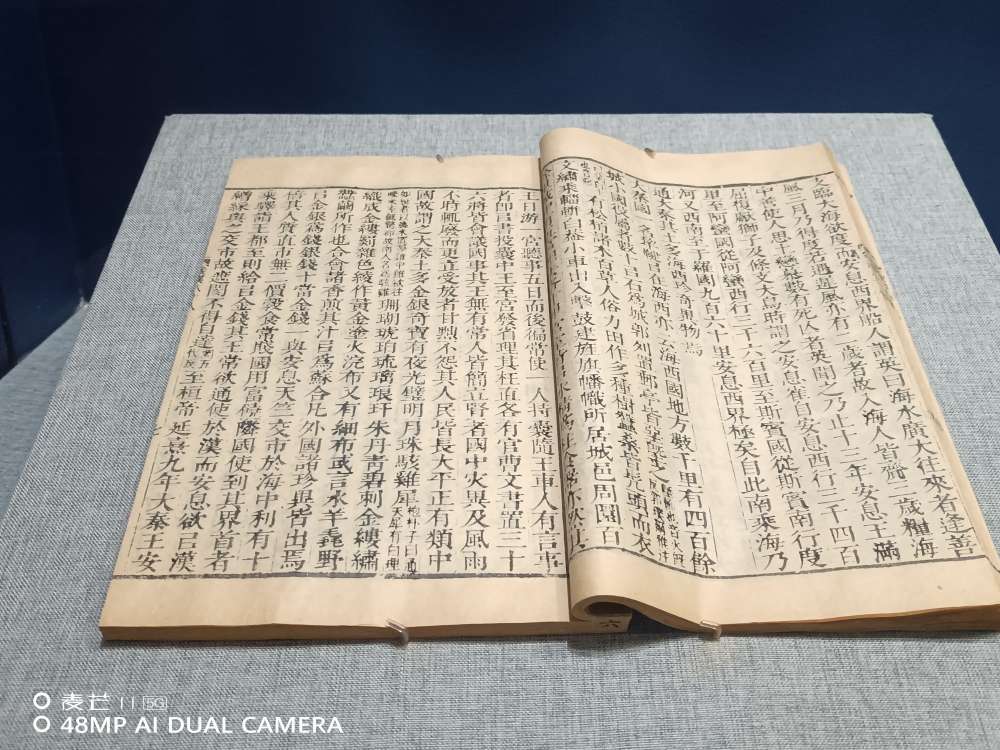 支臨大海欲度而安息西界船人謂英曰海水廣大往來者逢善
風三月乃得度若遇遲風亦有二歲者故入海人皆齎三歲糧海
中善使人思土戀慕數有死亡者英聞之乃止十三年安息王滿
屈復獻獅子及條支大鳥時謂之安息雀自安息西行三千四百
里至阿蠻國從阿蠻西行三千六百里至斯賓國從斯賓南行度
河又西南至于羅國九百六十里安息西界極矣自此南乘海乃
通大秦其土多海西珍奇異物焉
大秦國一名犂鞬㠯在海西亦云海西國地方數千里有四百餘
城小國役屬者數十㠯石為城郭列置郵亭皆堊塈之
有松栢諸木百草人俗力田作多種樹蠶桑皆髡頭而衣
文繡乘輜軿白蓋小車出入擊鼓建旌旗幡幟所居城邑周圜百
王日游一宮聽事五日而後徧常使一人持囊隨王車人有言事
者即㠯書投囊中王至宮發省理其枉直各有官曹文書置三十
六將皆會議國事其王無有常人皆簡立賢者國中災異及風雨
不時輒廢而更立受放者甘黜不怨其人民皆長大平正有類中
國故謂之大秦土多金銀奇寶有夜光璧明月珠駭雞犀
珊瑚琥珀琉璃琅玕朱丹青碧刺金縷繡
織成金縷罽雜色綾作黃金塗火浣布又有細布或言水羊毳野
蠶繭所作也合會諸香煎其汁㠯為蘇合凡外國諸珍異皆出焉
㠯金銀為錢銀錢十當金錢一與安息天竺交市於海中利有十
倍其人質直市無二價穀食常賤國用富饒隣國使到其界首者
乘驛詣王都至則給㠯金錢其王常欲通使於漢而安息欲㠯漢
繒綵與之交市故遮閡不得自達至桓帝延熹九年大秦王安
六
麦芒 11 5G
48MP AI DUAL CAMERA